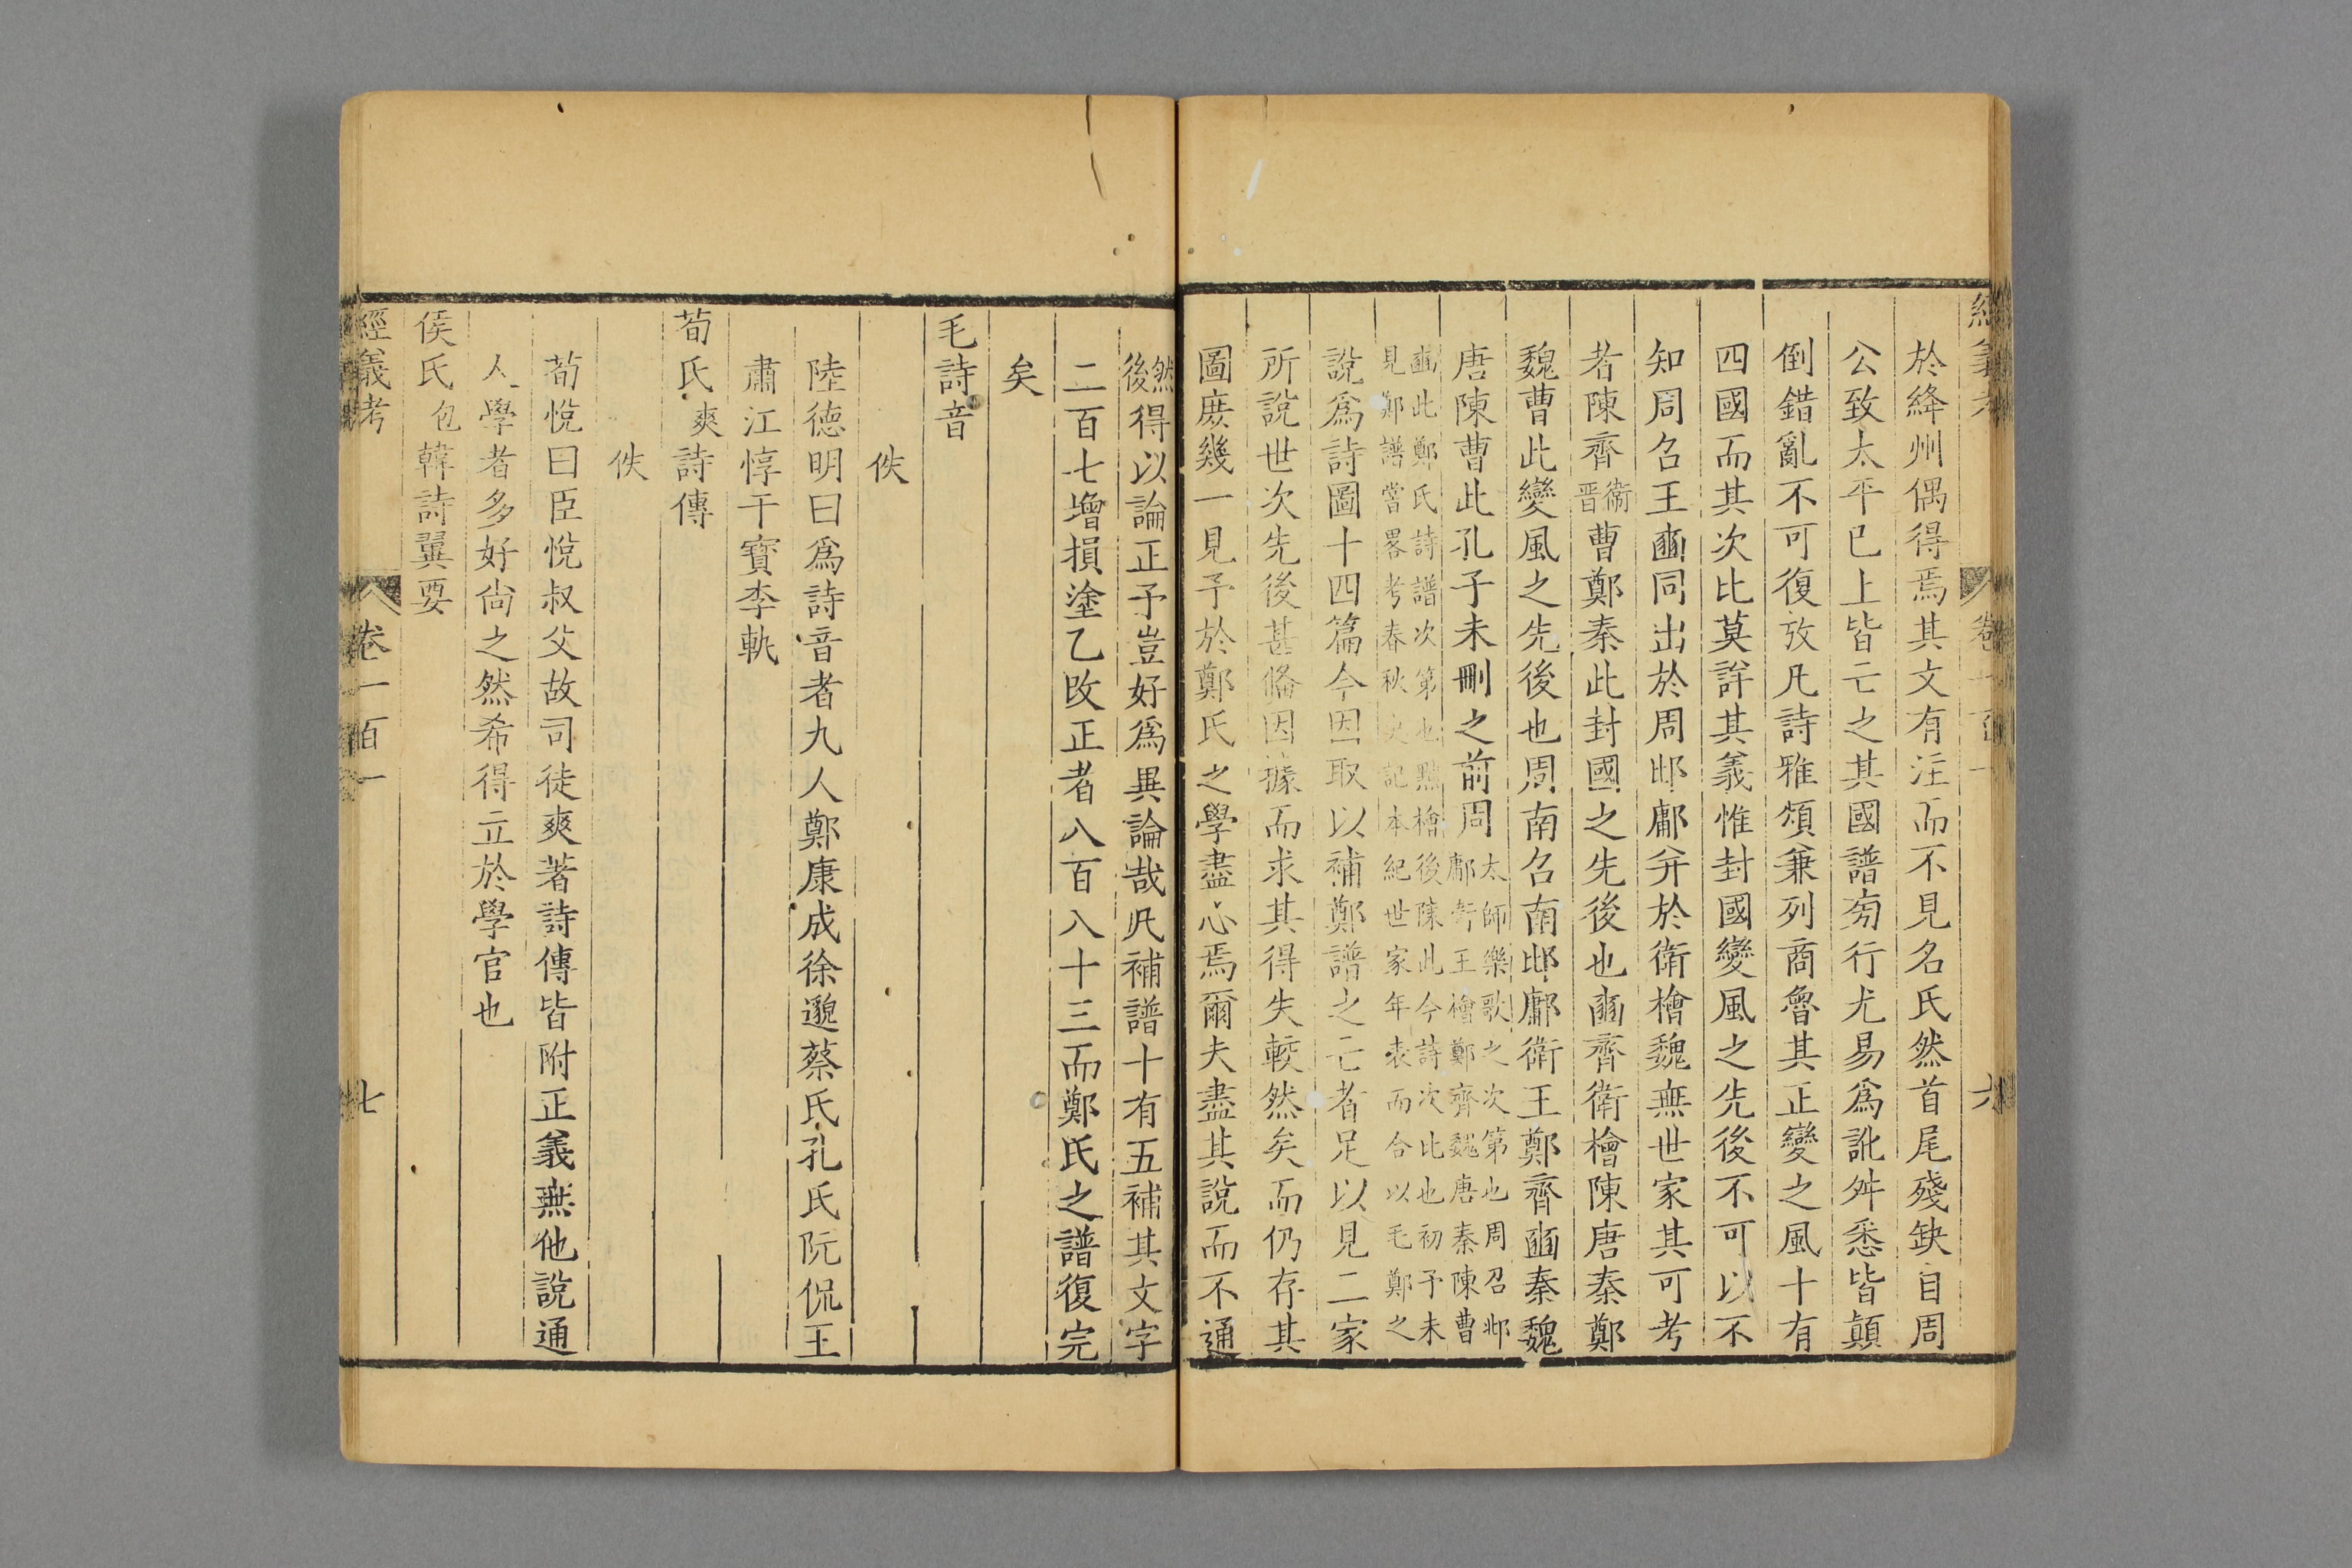 經義考 卷一百一 六
於絳州偶得焉其文有注而不見名氏然首尾殘缺自周
公致太平已上皆亡之其國譜旁行尤易爲訛舛悉皆顛
倒錯亂不可復攷凡詩雅頌兼列商魯其正變之風十有
四國而其次比莫詳其義惟封國變風之先後不可以不
知周召王豳同出於周邶鄘并於衛檜魏無世家其可考
者陳齊衛晉曹鄭秦此封國之先後也豳齊衛檜陳唐秦鄭
魏曹此變風之先後也周南召南邶鄘衛王鄭齊豳秦魏
唐陳曹此孔子未刪之前周太師樂歌之次第也周召邶鄘衛王檜鄭齊魏唐秦陳曹
豳此鄭氏詩譜次第也黜檜後陳此今詩次比也初予未見鄭譜嘗畧考春秋史記本紀世家年表而合以毛鄭之
說爲詩圖十四篇今因取以補鄭譜之亡者足以見二家
所說世次先後甚備因據而求其得失較然矣而仍存其
圖庶幾一見予於鄭氏之學盡心焉爾夫盡其說而不通
然後得以論正予豈好爲異論哉凡補譜十有五補其文字
二百七增損塗乙改正者八百八十三而鄭氏之譜復完
矣
毛詩音
佚
陸德明曰爲詩音者九人鄭康成徐邈蔡氏孔氏阮侃王
肅江惇干寶李軌
荀氏爽詩傳
佚
荀悅曰臣悅叔父故司徒爽著詩傳皆附正義無他說通
人學者多好尙之然希得立於學官也
侯氏包韓詩翼要
經義考 卷一百一 七